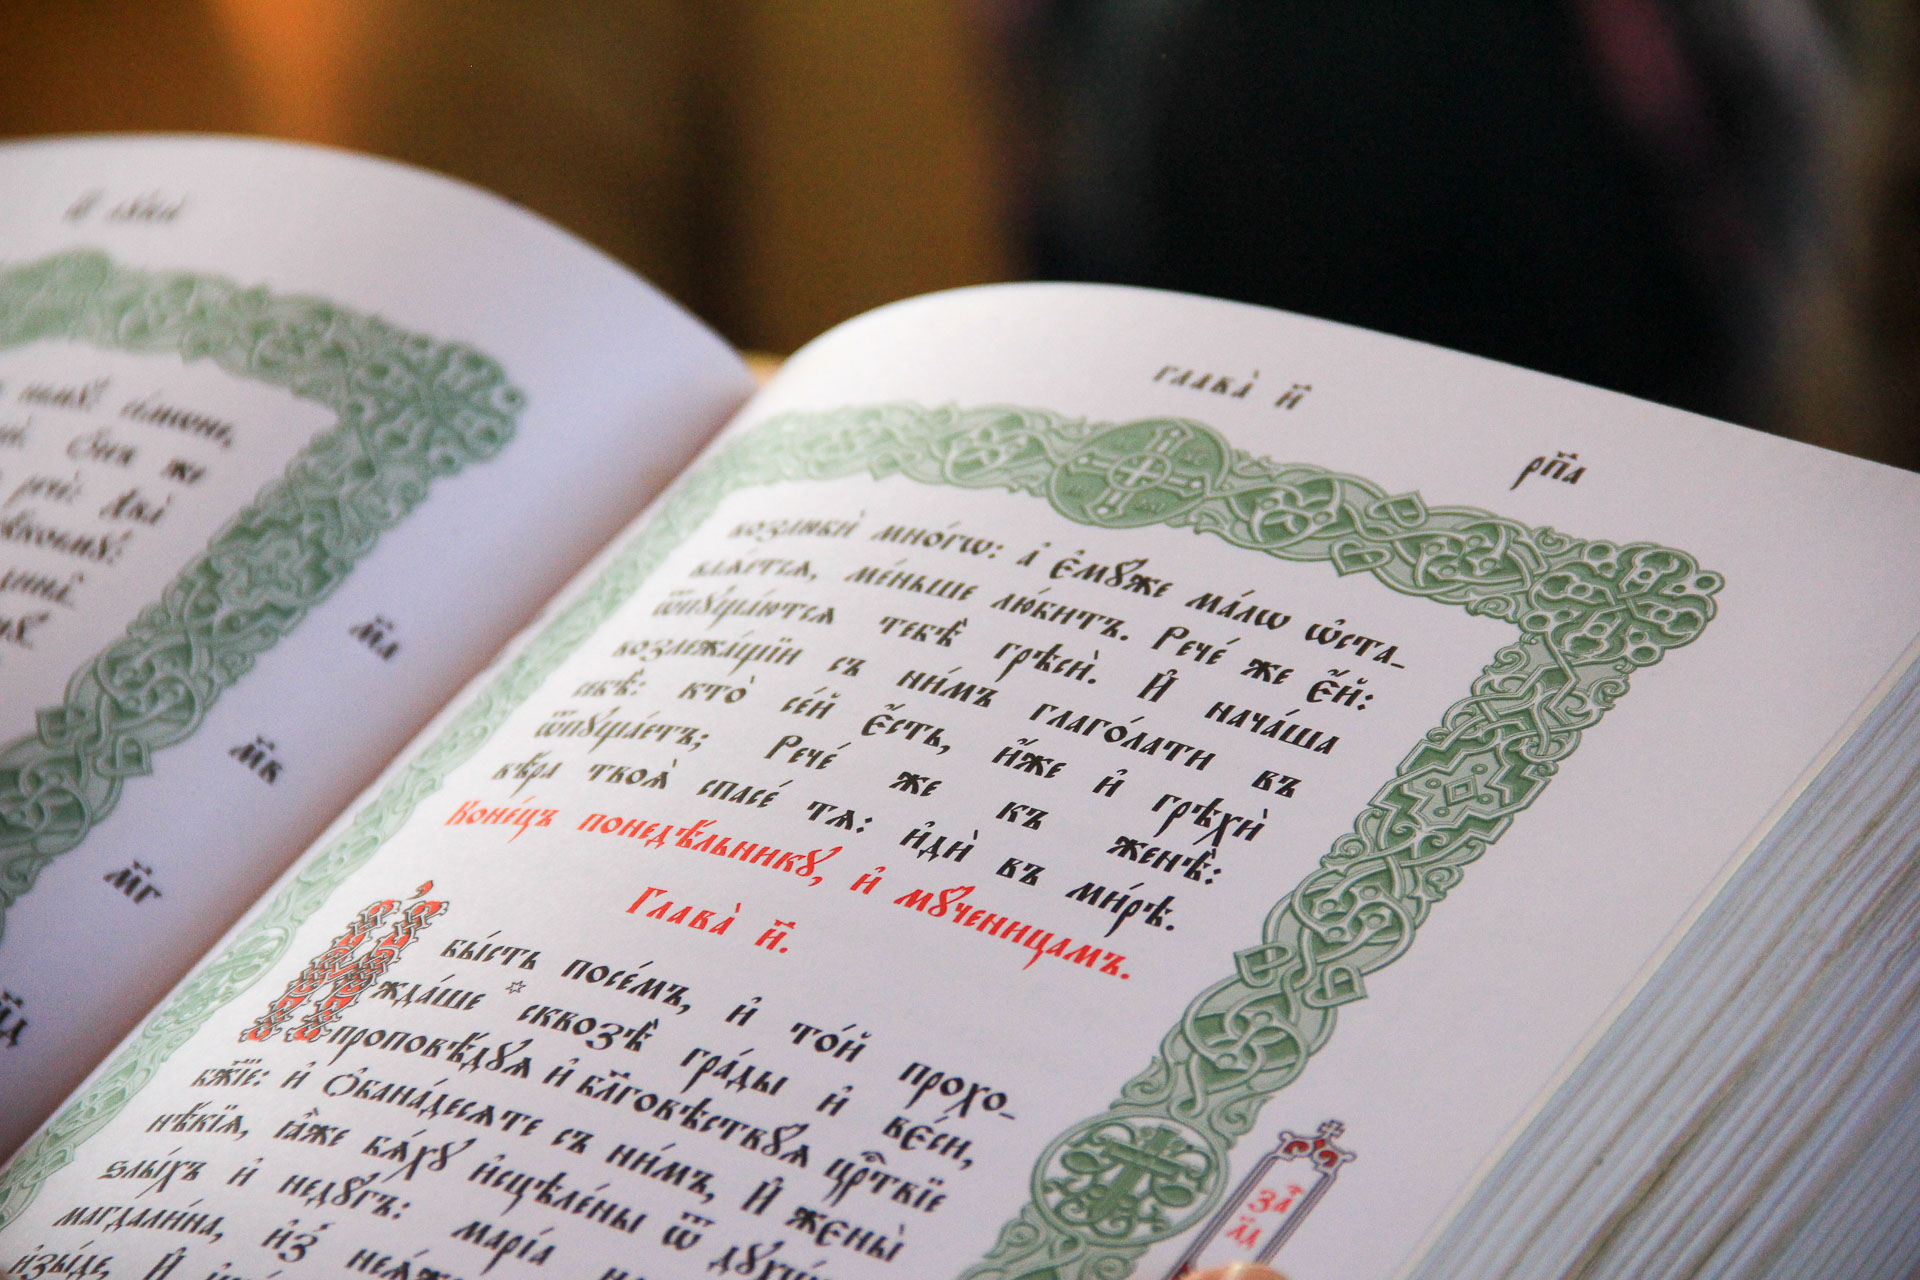 нмꙋ̀: сі́мѡне,
Ѻ́нъ же
речѐ: два̀
м҃а
м҃в
м҃г
м҃д
глава̀ и҃
рп҃а
возлюбѝ мно́гѡ: а҆ є҆мꙋ́же ма́лѡ ѡ҆ста-
влѧ́етсѧ, ме́ньше лю́битъ. Рече́ же є҆́й:
ѿпꙋща́ютсѧ тебѣ̀ грѣсѝ. И҆ нача́ша
возлежа́щїи съ ни́мъ глаго́лати въ
себѣ̀: кто̀ се́й є҆́сть, и҆́же и҆ грѣхѝ
ѿпꙋща́етъ; Рече́ же къ женѣ̀:
вѣ́ра твоѧ̀ спасе́ тѧ: и҆дѝ въ ми́рѣ.
Коне́цъ понедѣ́льникꙋ, и҆ мꙋ́ченицамъ.
Глава̀ и҃.
И҆ бы́сть посе́мъ, и҆ то́й прохо-
жда́ше сквозѣ̀ гра́ды и҆ вє́си,
проповѣ́дꙋѧ и҆ бл҃говѣствꙋѧ црⷭ҇твїе
бж҃їе: и҆ ѻ҆бана́десѧте съ ни́мъ, И҆ жєны̀
нѣ́кїѧ, ꙗ҆̀же бѧ́хꙋ и҆сцѣле́ны ѿ дꙋ́хѡвъ
ѕлы́хъ и҆ недꙋ̑гъ: марі́а
магдали́на, и҆з̾ неѧ́же
и҆зы́де, И҆
за҄
л҃д